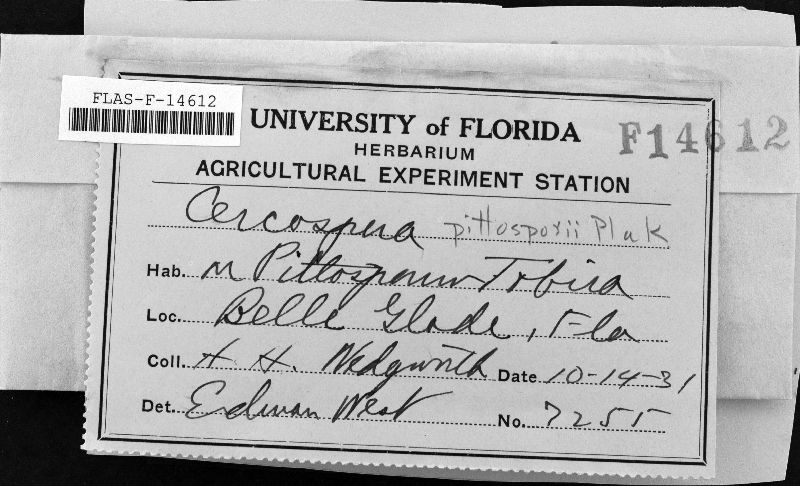 FLAS-F-14612
UNIVERSITY of FLORIDA
F14612
HERBARIUM
AGRICULTURAL EXPERIMENT STATION
Cercospora pittosporii Plak
Hab. on Pittosporum Tobira
Loc. Belle Glade, Fla
Coll. H. H. Wedgworth Date 10-14-31
Det. Erdman West No. 7255